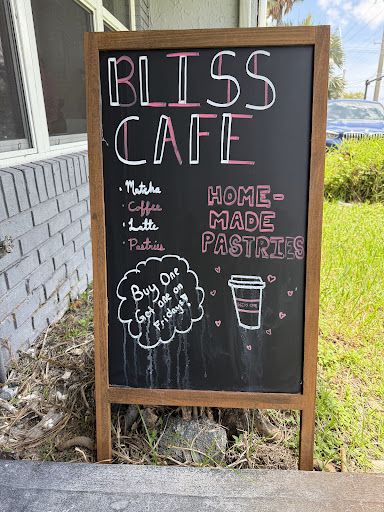 BLISS
CAFE
• Matcha
• Coffee
• Latte
• Pastries
HOME-
MADE
PASTRIES
Buy One
Get one on
Fridays!!